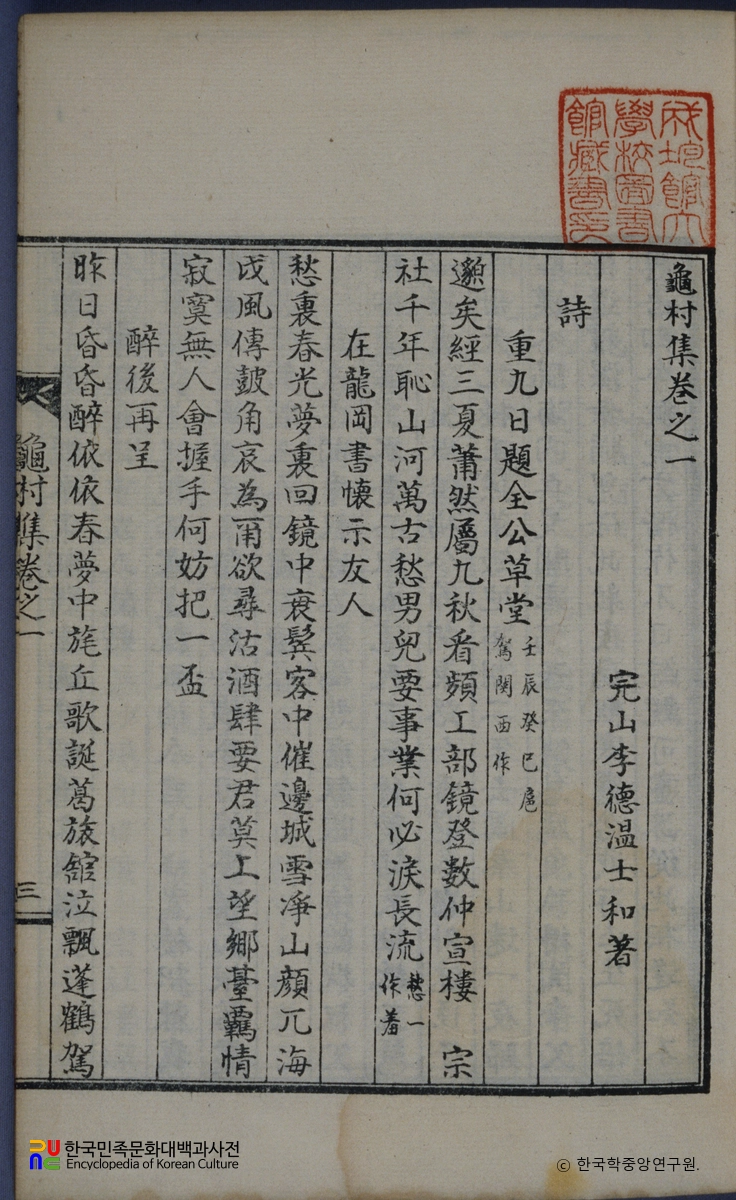 成均館大
學校圖書
館藏書印
龜村集卷之一
完山李德溫士和著
詩
重九日題全公草堂 壬辰癸巳扈
駕關西作
邈矣經三夏蕭然屬九秋看頻工部鏡登數仲宣樓 宗
社千年恥山河萬古愁男兒要事業何必淚長流 愁一
作着
在龍岡書懷示友人
愁裏春光夢裏回鏡中衰鬂客中催邊城雪凈山顔兀海
戍風傳皷角哀為甭欲尋沽酒肆要君莫上望鄉臺羈情
寂寞無人會握手何妨把一盃
醉後再呈
昨日昏昏醉依依春夢中旄丘歌誕葛旅舘泣飄蓬鶴駕
龜村集卷之一
三
한국민족문화대백과사전
Encyclopedia of Korean Culture
© 한국학중앙연구원.